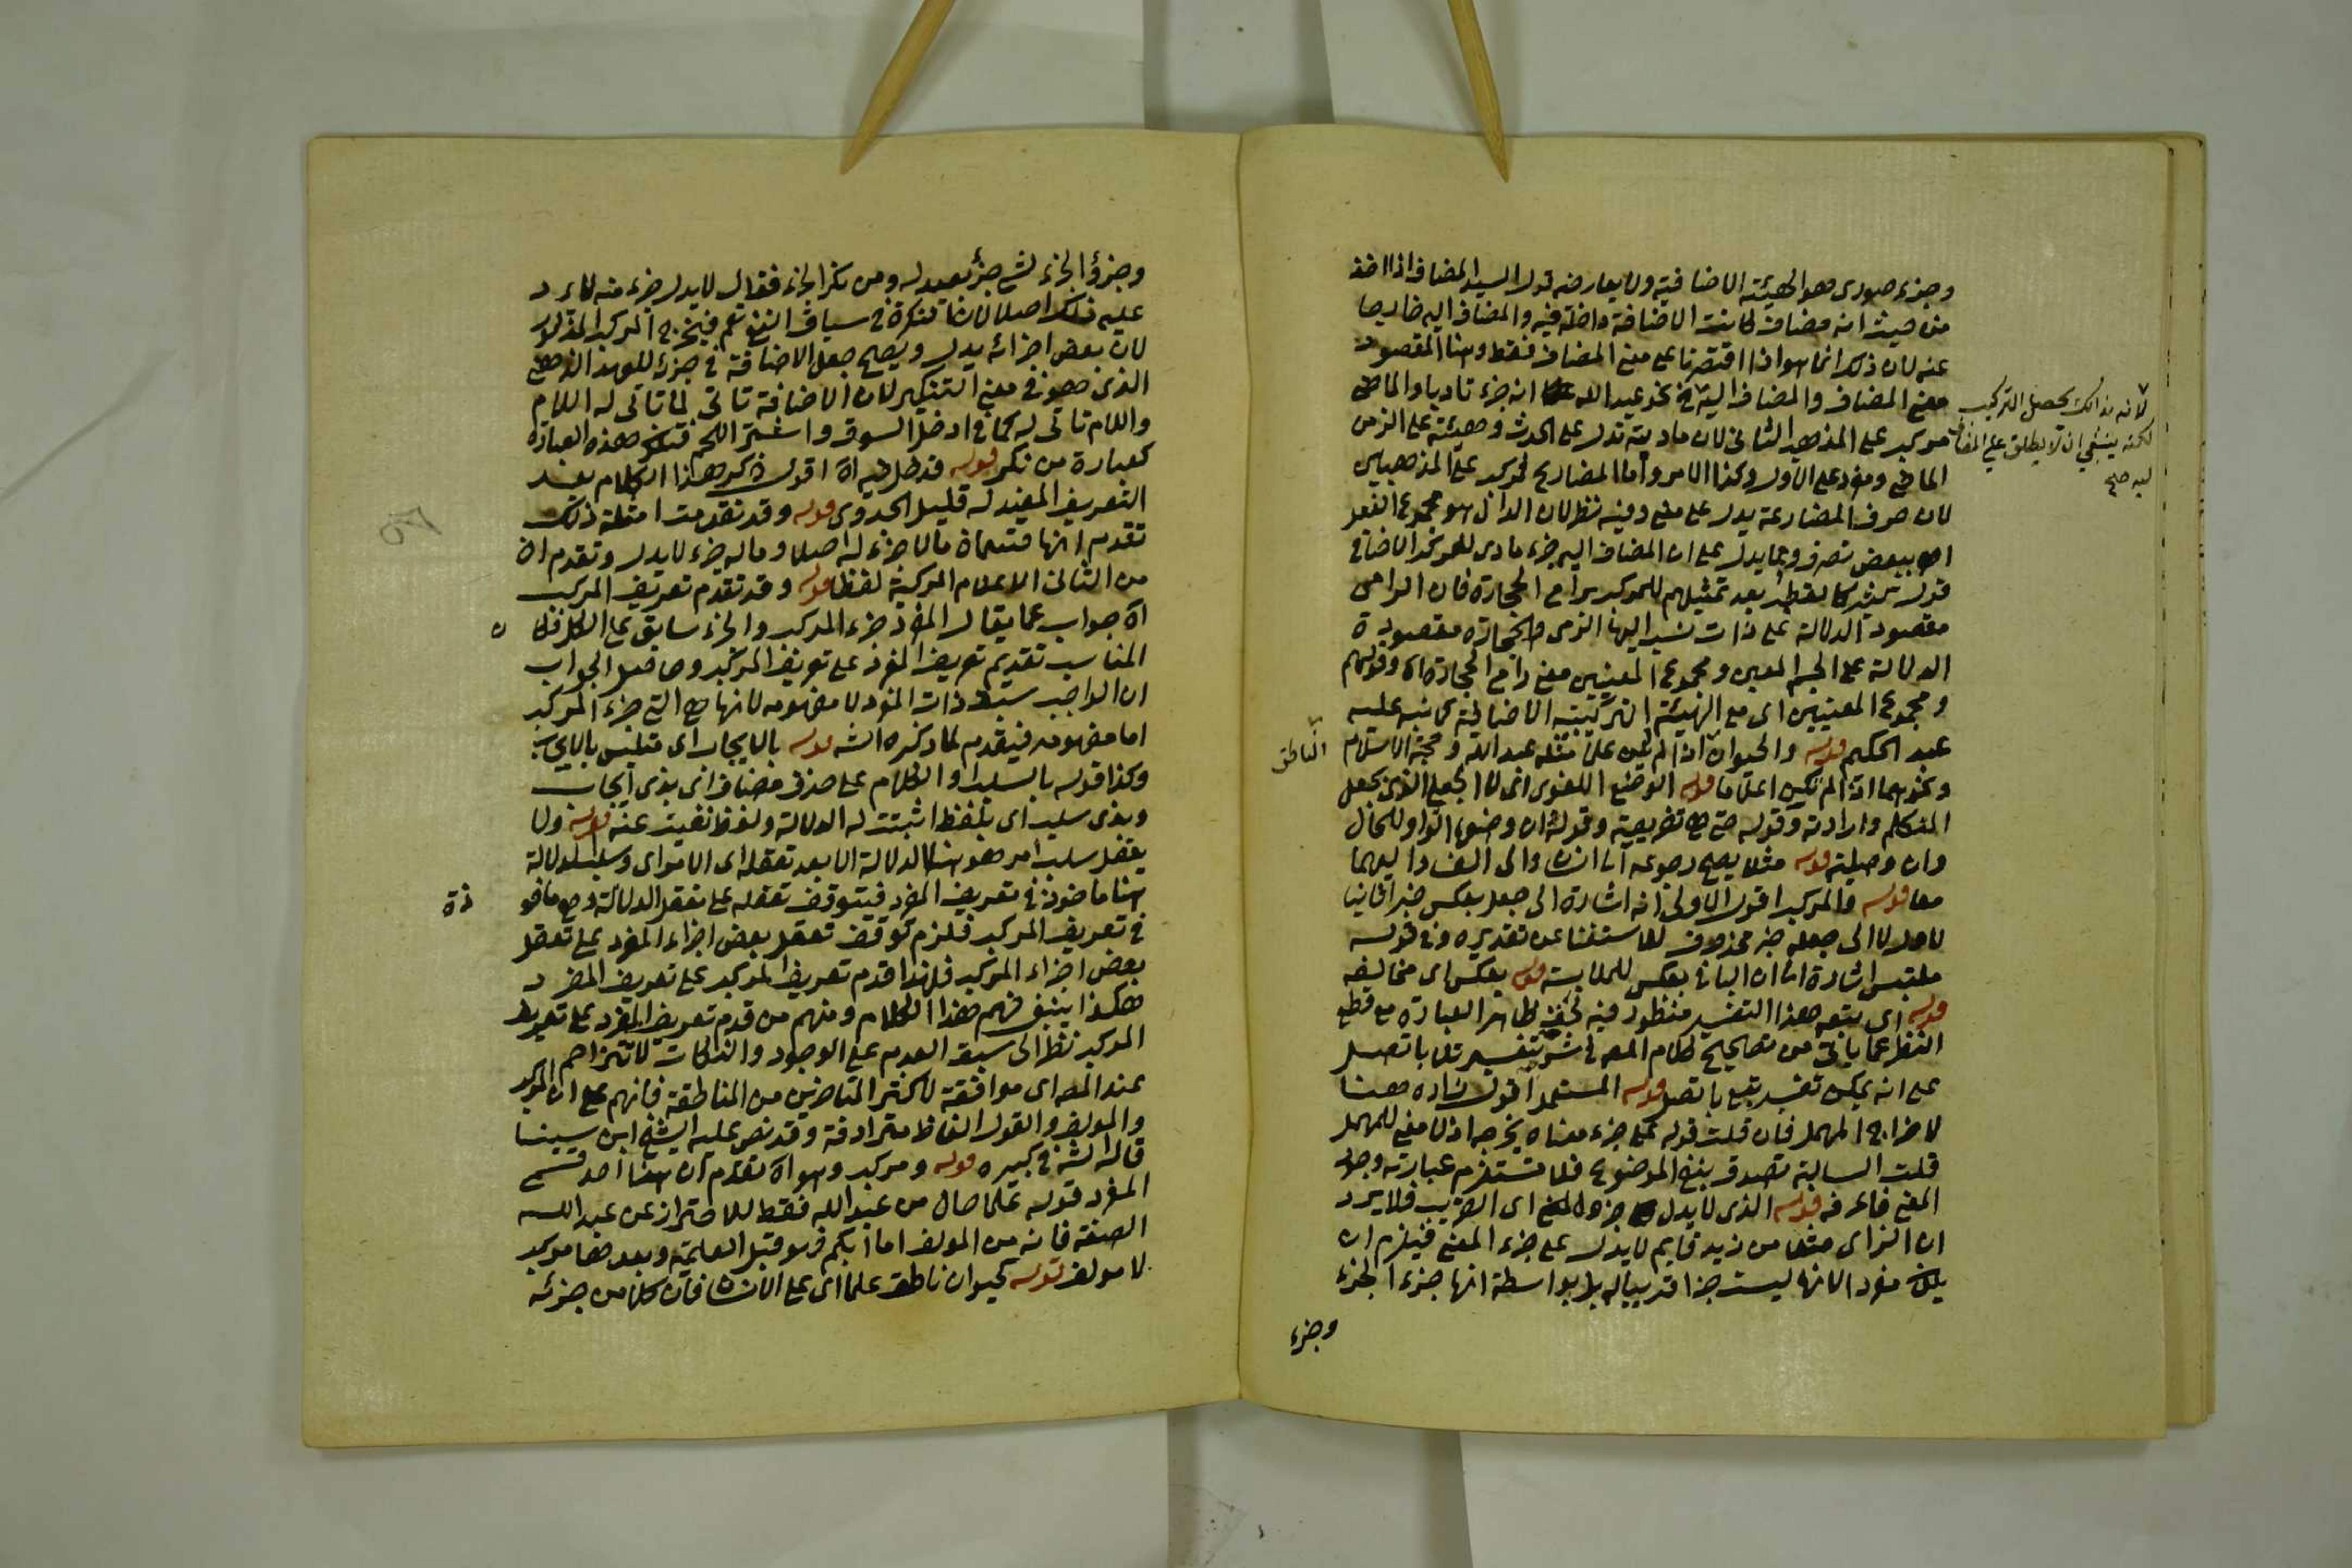 وجزء صوري هو الهيئة الاضافية ولا يعارضه قول السيد المضاف اذا اخذ
من حيث انه مضاف كانت الاضافة داخلة فيه والمضاف اليه خارجا
عنه لان ذلك انما هو اذا اقتصرنا على معنى المضاف فقط وهنا المقصود
معنى المضاف والمضاف اليه في نحو عبد الله انه جزء تاديا والماضي
مركب على المذهب الثاني لان مادته تدل على الحدث وهيئته على الزمن
الماضي ومفرد على الاول وكذا الامر واما المضارع فمركب على المذهبين
لان حرف المضارعة يدل على معنى وفيه نظر لان الدال هو مجموع الفعل
اه ببعض تصرف ومما يدل على ان المضاف اليه جزء مادي للمركب الاضافي
قول القطب بعد تمثيلهم للمركب برامي الحجارة فان الرامي
مقصود الدلالة على ذات نسب اليها الرمي والحجارة مقصودة
الدلالة على الجسم المعين ومجموع المعنيين معنى رامي الحجارة اه وقولهم
ومجموع المعنيين اي مع الهيئة التركيبية الاضافية كما نبه عليه
عبد الحكيم قوله والحيوان اذا لم يكن علما مثله عبد الله وحجة الاسلام
ونحوهما اذا لم تكن اعلاما قوله الوضع اللغوي اي لا الجعل الذي بجعل
المتكلم وارادته وقوله حتى تفريعية وقوله ان وضوا الواو للحال
وان وصلية قوله مثلا يصح رجوعه الى انسان والى الف واليهما
معا قوله والمركب اقول الاولى انه اشارة الى جعل بعكس خبرا ثانيا
لا الى جعله خبر محذوف للاستغناء عن تقديره وفي قوله
ملتبس اشارة الى ان الباء في بعكس للملابسة قوله بعكس اي مخالفة
قوله اي يتبعه هذا التفسير منظور فيه لظاهر العبارة مع قطع
النظر عما ياتي من تصحيح كلام المص في شر بتفسير تلا باتصل
على انه يمكن تفسير يتبع باتصل قوله المستعمل اقول زاده هنا
لاخراج المهمل فان قلت قوله على جزء معناه يخرجه اذ لا معنى للمهمل
قلت السالبة تصدق بنفي الموضوع فلا تستلزم عبارته وجود
المعنى فاعرفه قوله الذي لا يدل جزؤه اي القريب فلا يرد
ان الزاي مثلا من زيد قايم لا يدل على جزء المعنى فيلزم ان
يكون مفردا لانها ليست جزءا قريبا له بل بواسطة انها جزء الجزء
وجزء
لانه بذلك يحصل التركيب
لكنه ينبغي ان لا يطلق على المضاف
اليه صح
الناطق
وجزؤ الجزء لشيء جزؤ بعيد له ومن نكر الجزء فقال لا يدل جزء منه لا يرد
عليه ذلك اصلا لان النكرة في سياق النفي تعم فيخرج المركب المذكور
لان بعض اجزائه يدل ويصح جعل الاضافة في جزئه للعهد الذهني
الذي هو في معنى التنكير لان الاضافة تاتي لما تاتي له اللام
واللام تاتي له كما في ادخل السوق واشتر اللحم فتكون هذه العبارة
كعبارة من نكر قوله فدخل فيه اه اقول ذكر هذا الكلام بعد
التعريف المفيد له قليل الجدوى قوله وقد تقدمت امثلة ذلك
تقدم انها قسمان ما لا جزء له اصلا وما له جزء لا يدل وتقدم ان
من الثاني الاعلام المركبة لفظا قوله وقد تقدم تعريف المركب
اه جواب عما يقال المفرد جزء المركب والجزء سابق على الكل فكان
المناسب تقديم تعريف المفرد على تعريف المركب وحاصل الجواب
ان الواجب سبق ذات المفرد لا مفهومه لانها هي التي جزء المركب
اما مفهومه فيقدم لما ذكره الش قوله بالايجاب اي متلبس بالايجاب
وكذا قوله بالسلب او الكلام على حذف مضاف اي بذي ايجاب
وبذي سلب اي بلفظ اثبتت له الدلالة ولفظ نفيت عنه قوله ولا
يعقل سلب امر هو هنا الدلالة الا بعد تعقله اي الامر اي وسلب الدلالة
هنا ماخوذ في تعريف المفرد فيتوقف تعقله على تعقل الدلالة وهي ماخوذة
في تعريف المركب فلزم توقف تعقل بعض اجزاء المفرد على تعقل
بعض اجزاء المركب فلهذا قدم تعريف المركب على تعريف المفرد
هكذا ينبغي فهم هذا الكلام ومنهم من قدم تعريف المفرد على تعريف
المركب نظرا الى سبق العدم على الوجود والنكات لا تتزاحم
عند المص اي موافقة لاكثر المتاخرين من المناطقة فانهم على ان المركب
والمولف والقول الفاظ مترادفة وقد نص عليه الشيخ ابن سينا
قاله الش في كبيره قوله ومركب وهو اه تقدم ان هذا احد قسمي
المفرد قوله علما حال من عبد الله فقط للاحتراز عن عبد الله
الصفة فانه من المولف اما ابكم فهو قبل العلمية وبعدها مركب
لا مولف قوله كحيوان ناطق علما اي على الانسان فان كلا من جزئه